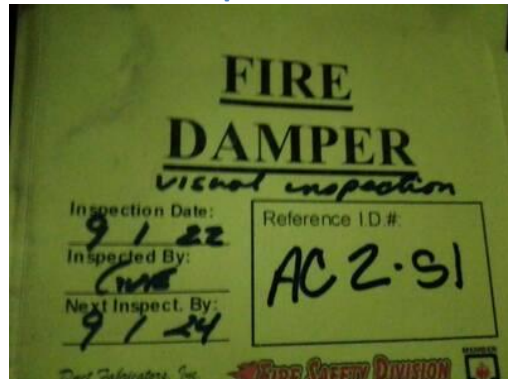 FIRE
DAMPER
visual inspection
Inspection Date:
9 / 1 22
Inspected By:
Next Inspect. By:
9 / 1 24
Reference I.D.#:
AC 2-S1
Duct Fabricators, Inc.
FIRE SAFETY DIVISION
MEMBER